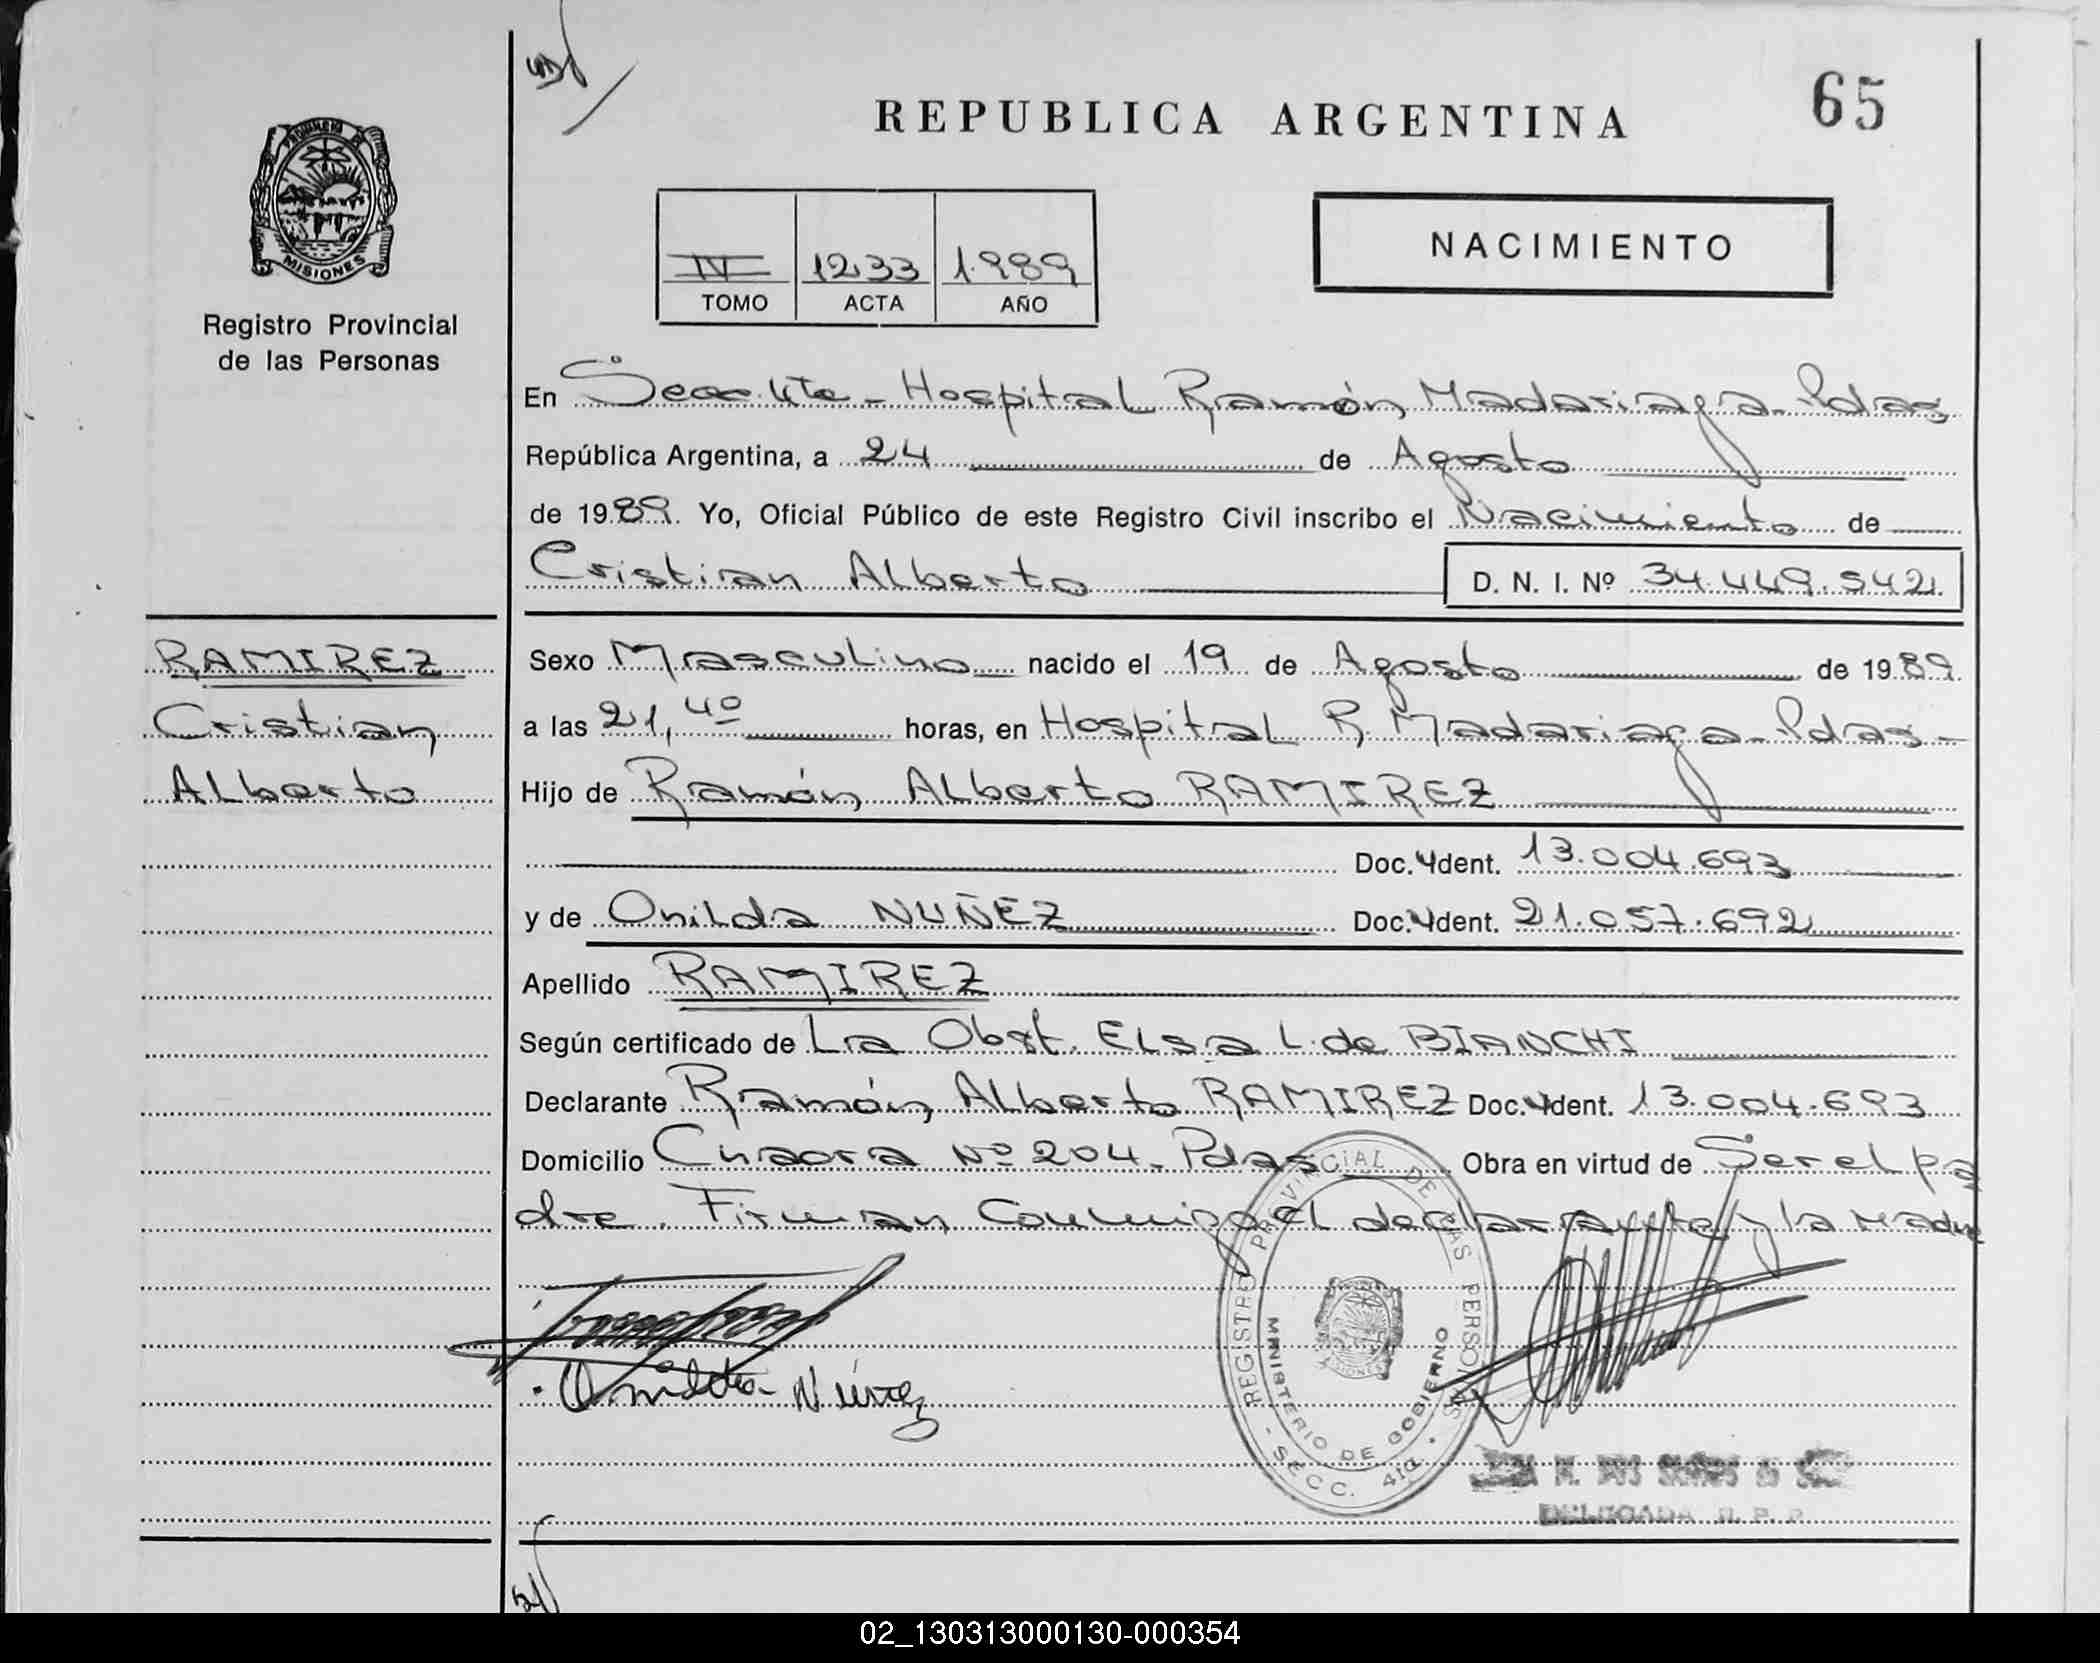 REPUBLICA ARGENTINA
65
PROVINCIA DE
MISIONES
Registro Provincial
de las Personas
IV 1233 1.989
TOMO ACTA AÑO
NACIMIENTO
En Secc. 4ta - Hospital Ramón Madariaga - Pdas
República Argentina, a 24 de Agosto
de 1989. Yo, Oficial Público de este Registro Civil inscribo el Nacimiento de
Cristian Alberto D. N. I. Nº 34.449.542.
RAMIREZ
Cristian
Alberto
Sexo Masculino nacido el 19 de Agosto de 1989.
a las 21,40 horas, en Hospital R. Madariaga - Pdas -
Hijo de Ramón Alberto RAMIREZ
Doc. Ident. 13.004.693
y de Onilda NUÑEZ Doc. Ident. 21.057.692
Apellido RAMIREZ
Según certificado de La Obst. Elsa L. de BIANCHI
Declarante Ramón Alberto RAMIREZ Doc. Ident. 13.004.693
Domicilio Cuaora Nº 204 - Pdas Obra en virtud de Ser el pa
dre. Firman Conmigo el declarante y la Madre
Onilda Núñez
REGISTRO PROVINCIAL DE LAS PERSONAS
MINISTERIO DE GOBIERNO
SECC. 4ta.
M. DOS SANTOS de
DELEGADA R. P. P.
02_130313000130-000354